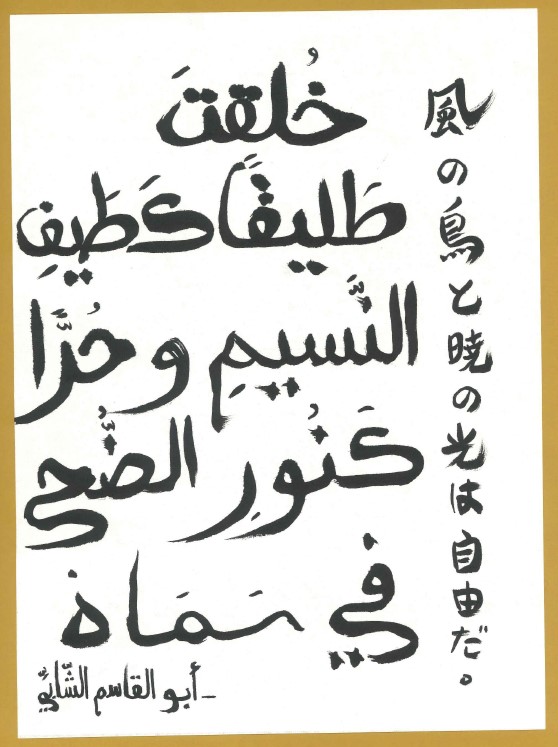 風の鳥と暁の光は自由だ。
خُلقتَ
طَليقًا كَطَيفِ
النَّسيمِ وحُرًّا
كَنُورِ الضُّحى
في سَمَاهْ
– أبو القاسم الشَّابِّي